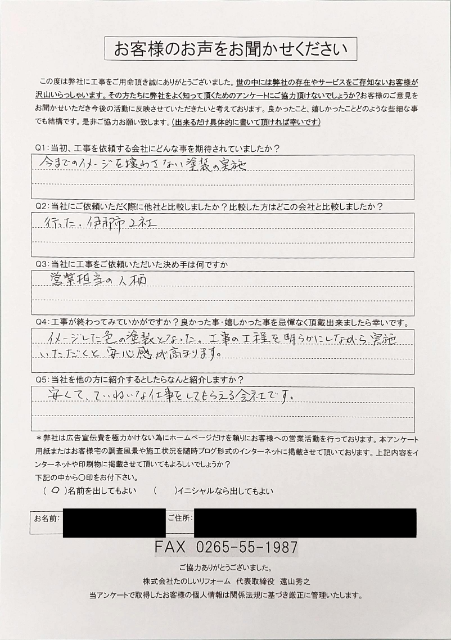 お客様のお声をお聞かせください
この度は弊社に工事をご用命頂き誠にありがとうございました。世の中には弊社の存在やサービスをご存知ないお客様が
沢山いらっしゃいます。その方たちに弊社をよく知って頂くためのアンケートにご協力頂けないでしょうか?お客様のご意見を
お聞かせいただき今後の活動に反映させていただきたいと考えております。良かったこと、嬉しかったことどのような些細な事
でも結構です。是非ご協力お願い致します。(出来るだけ具体的に書いて頂ければ幸いです)
Q1:当初、工事を依頼する会社にどんな事を期待されていましたか?
今までのイメージを壊わさない塗装の実施
Q2:当社にご依頼いただく際に他社と比較しましたか?比較した方はどこの会社と比較しましたか?
行った。伊那市2社
Q3:当社に工事をご依頼いただいた決め手は何ですか
営業担当の人柄
Q4:工事が終わってみていかがですか?良かった事・嬉しかった事を忌憚なく頂戴出来ましたら幸いです。
イメージした色の塗装となった。工事の工程を明らかにしながら実施
いただくと安心感が高まります。
Q5:当社を他の方に紹介するとしたらなんと紹介しますか?
安くて、ていねいな仕事をしてもらえる会社です。
*弊社は広告宣伝費を極力かけない為にホームページだけを頼りにお客様への営業活動を行っております。本アンケート
用紙またはお客様宅の調査風景や施工状況を随時ブログ形式のインターネットに掲載させて頂いております。上記内容をイ
ンターネットや印刷物に掲載させて頂いてもよろしいでしょうか?
下記の中から〇印をお付下さい。
(〇)名前を出してもよい ( )イニシャルなら出してもよい
お名前: ご住所:
FAX 0265-55-1987
ご協力ありがとうございました。
株式会社たのしいリフォーム 代表取締役 遠山秀之
当アンケートで取得したお客様の個人情報は関係法規に基づき厳正に管理いたします。